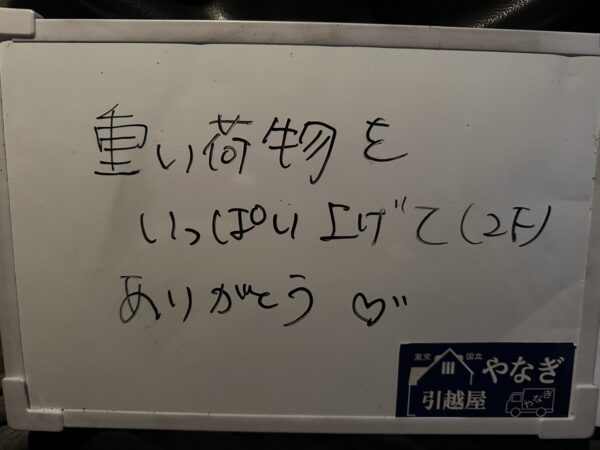 重い荷物を
いっぱい上げて(2F)
ありがとう♡
東京 国立 やなぎ
引越屋
やなぎ